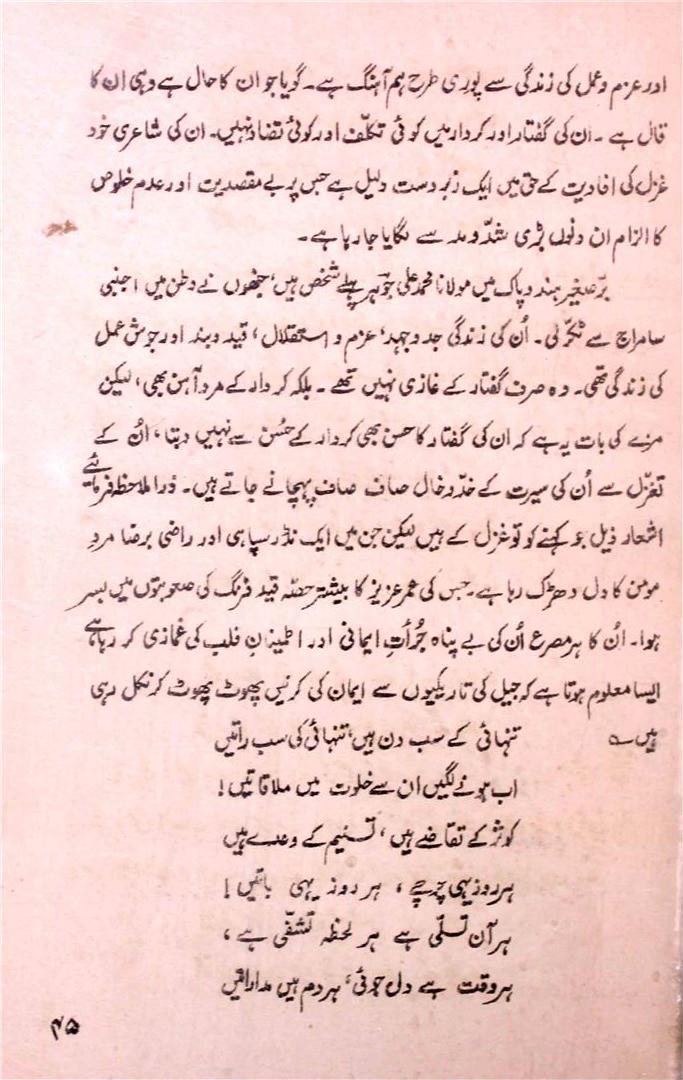 اور عزم و عمل کی زندگی سے پوری طرح ہم آہنگ ہے۔ گویا جو ان کا حال ہے وہی ان کا
قال ہے۔ ان کی گفتار اور کردار میں کوئی تکلّف اور کوئی تضاد نہیں۔ ان کی شاعری خود
غزل کی افادیت کے حق میں ایک زبردست دلیل ہے جس پر بے مقصدیت اور عدم خلوص
کا الزام ان دنوں بڑی شدّ و مد سے لگایا جا رہا ہے۔
برّصغیر ہند و پاک میں مولانا محمد علی جوہر پہلے شخص ہیں، جنھوں نے وطن میں اجنبی
سامراج سے ٹکّر لی۔ اُن کی زندگی جدوجہد، عزم و استقلال، قید و بند اور جوش عمل
کی زندگی تھی۔ وہ صرف گفتار کے غازی نہیں تھے۔ بلکہ کردار کے مرد آہن بھی، لیکن
مزے کی بات یہ ہے کہ ان کی گفتار کا حسن بھی کردار کے حُسن سے نہیں دبتا، اُن کے
تغزّل سے اُن کی سیرت کے خدّ و خال صاف صاف پہچانے جاتے ہیں۔ ذرا ملاحظہ فرمائیے
اشعار ذیل جو کہنے کو تو غزل کے ہیں لیکن جن میں ایک نڈر سپاہی اور راضی برضا مردِ
مومن کا دل دھڑک رہا ہے۔ جس کی عمر عزیز کا بیشتر حصّہ قید فرنگ کی صعوبتوں میں بسر
ہوا۔ اُن کا ہر مصرع اُن کی بے پناہ جُرأتِ ایمانی اور اطمینانِ قلب کی غمازی کر رہا ہے
ایسا معلوم ہوتا ہے کہ جیل کی تاریکیوں سے ایمان کی کرنیں پھوٹ پھوٹ کر نکل رہی
ہیں ؎
تنہائی کے سب دن ہیں، تنہائی کی سب راتیں
اب ہونے لگیں ان سے خلوت میں ملاقاتیں!
کوثر کے تقاضے ہیں، تسنیم کے وعدے ہیں
ہر روز یہی چرچے، ہر روز یہی باتیں!
ہر آن تسلّی ہے ہر لحظہ تشفّی ہے،
ہر وقت ہے دل جوئی، ہر دم ہیں مداراتیں
۴۵